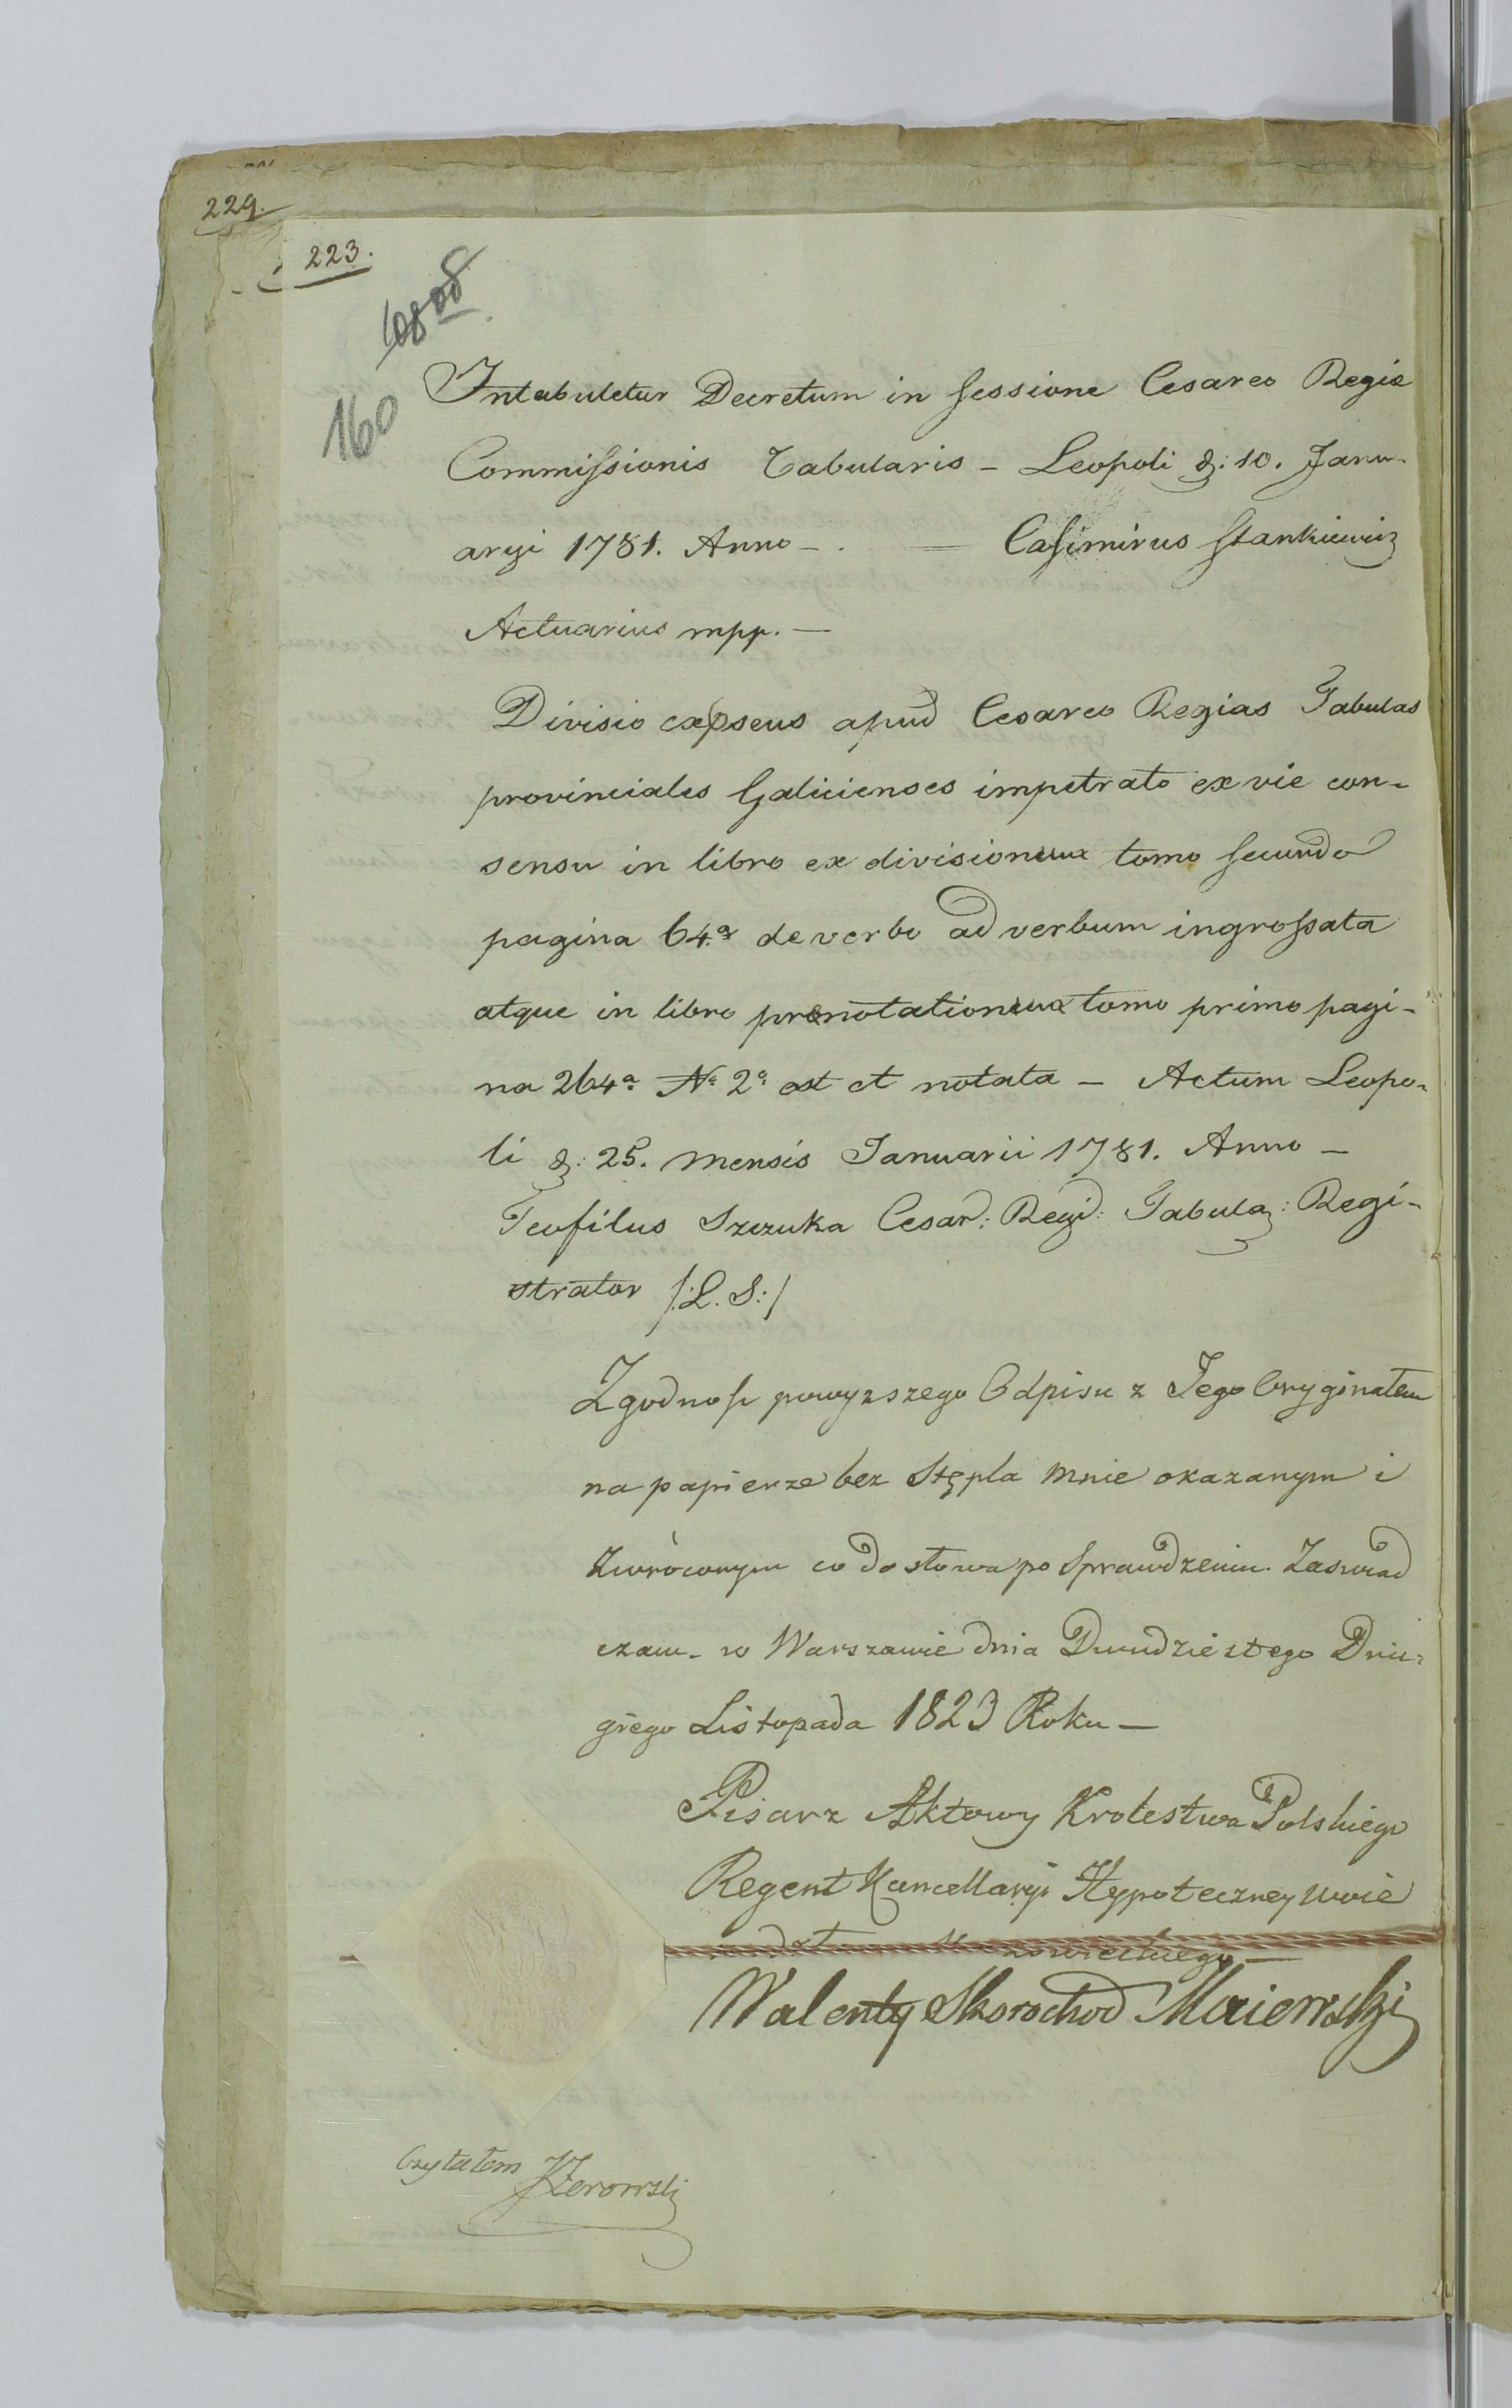 229.
223.
160
Intabuletur Decretum in sessione Cesareo Regie
Commissionis Tabularis – Leopoli d: 10. Janu-
aryi 1781. Anno – . = Casimirus Stankiewicz
Actuarius mpp. –
Divisio expseus apud Cesareo Regias Tabulas
provinciales Galicienses impetrato ex vie con-
sensu in libro ex divisionum tomo secundo
pagina 64.a de verbo ad verbum ingrossata
atque in libro prenotationum tomo primo pagi-
na 264a No 2o est et notata – Actum Leopo-
li d: 25. mensis Januarii 1781. Anno –
Teofilus Szczuka Cesar: Regi: Tabula: Regi-
strator /:L. S:/
Zgodnosc powyzszego Odpisu z Jego Oryginałem
na papierze bez Stępla mnie okazanym i
zwróconym co do słowa po Sprawdzeniu Zaswiad
czam – w Warszawie dnia Dwudziestego Dru-
giego Listopada 1823 Roku –
Pisarz Aktowy Krolestwa Polskiego
Regent Kancellaryi Hypoteczney Woie
wodztwa Mazowieckiego –
Walenty Skorochod Maiewski
Czytałem